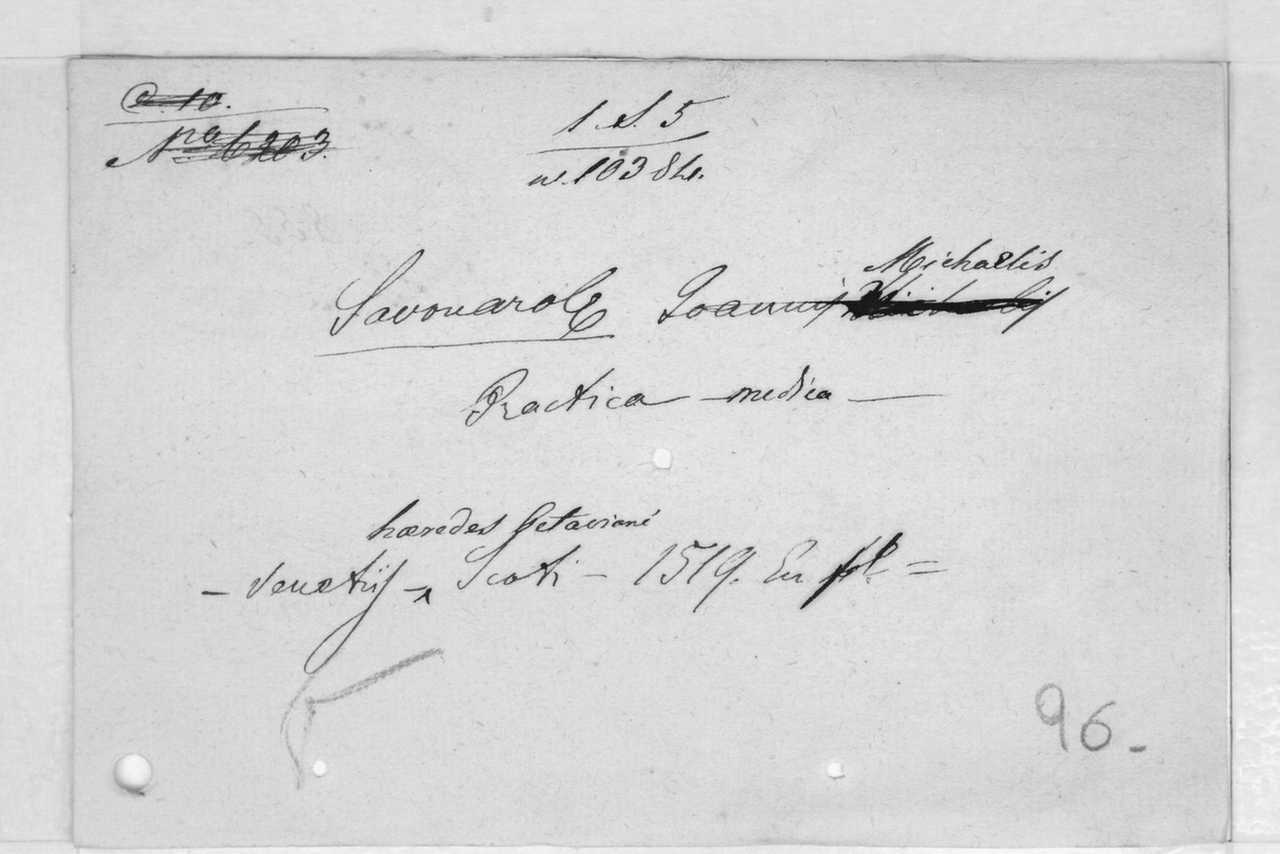 1. S. 5
n. 10384.
Savonarolæ Joannis Michaelis
Practica — medica —
hæredes Octaviani
— Venetiis — Scoti — 1519. En fol =
96 -